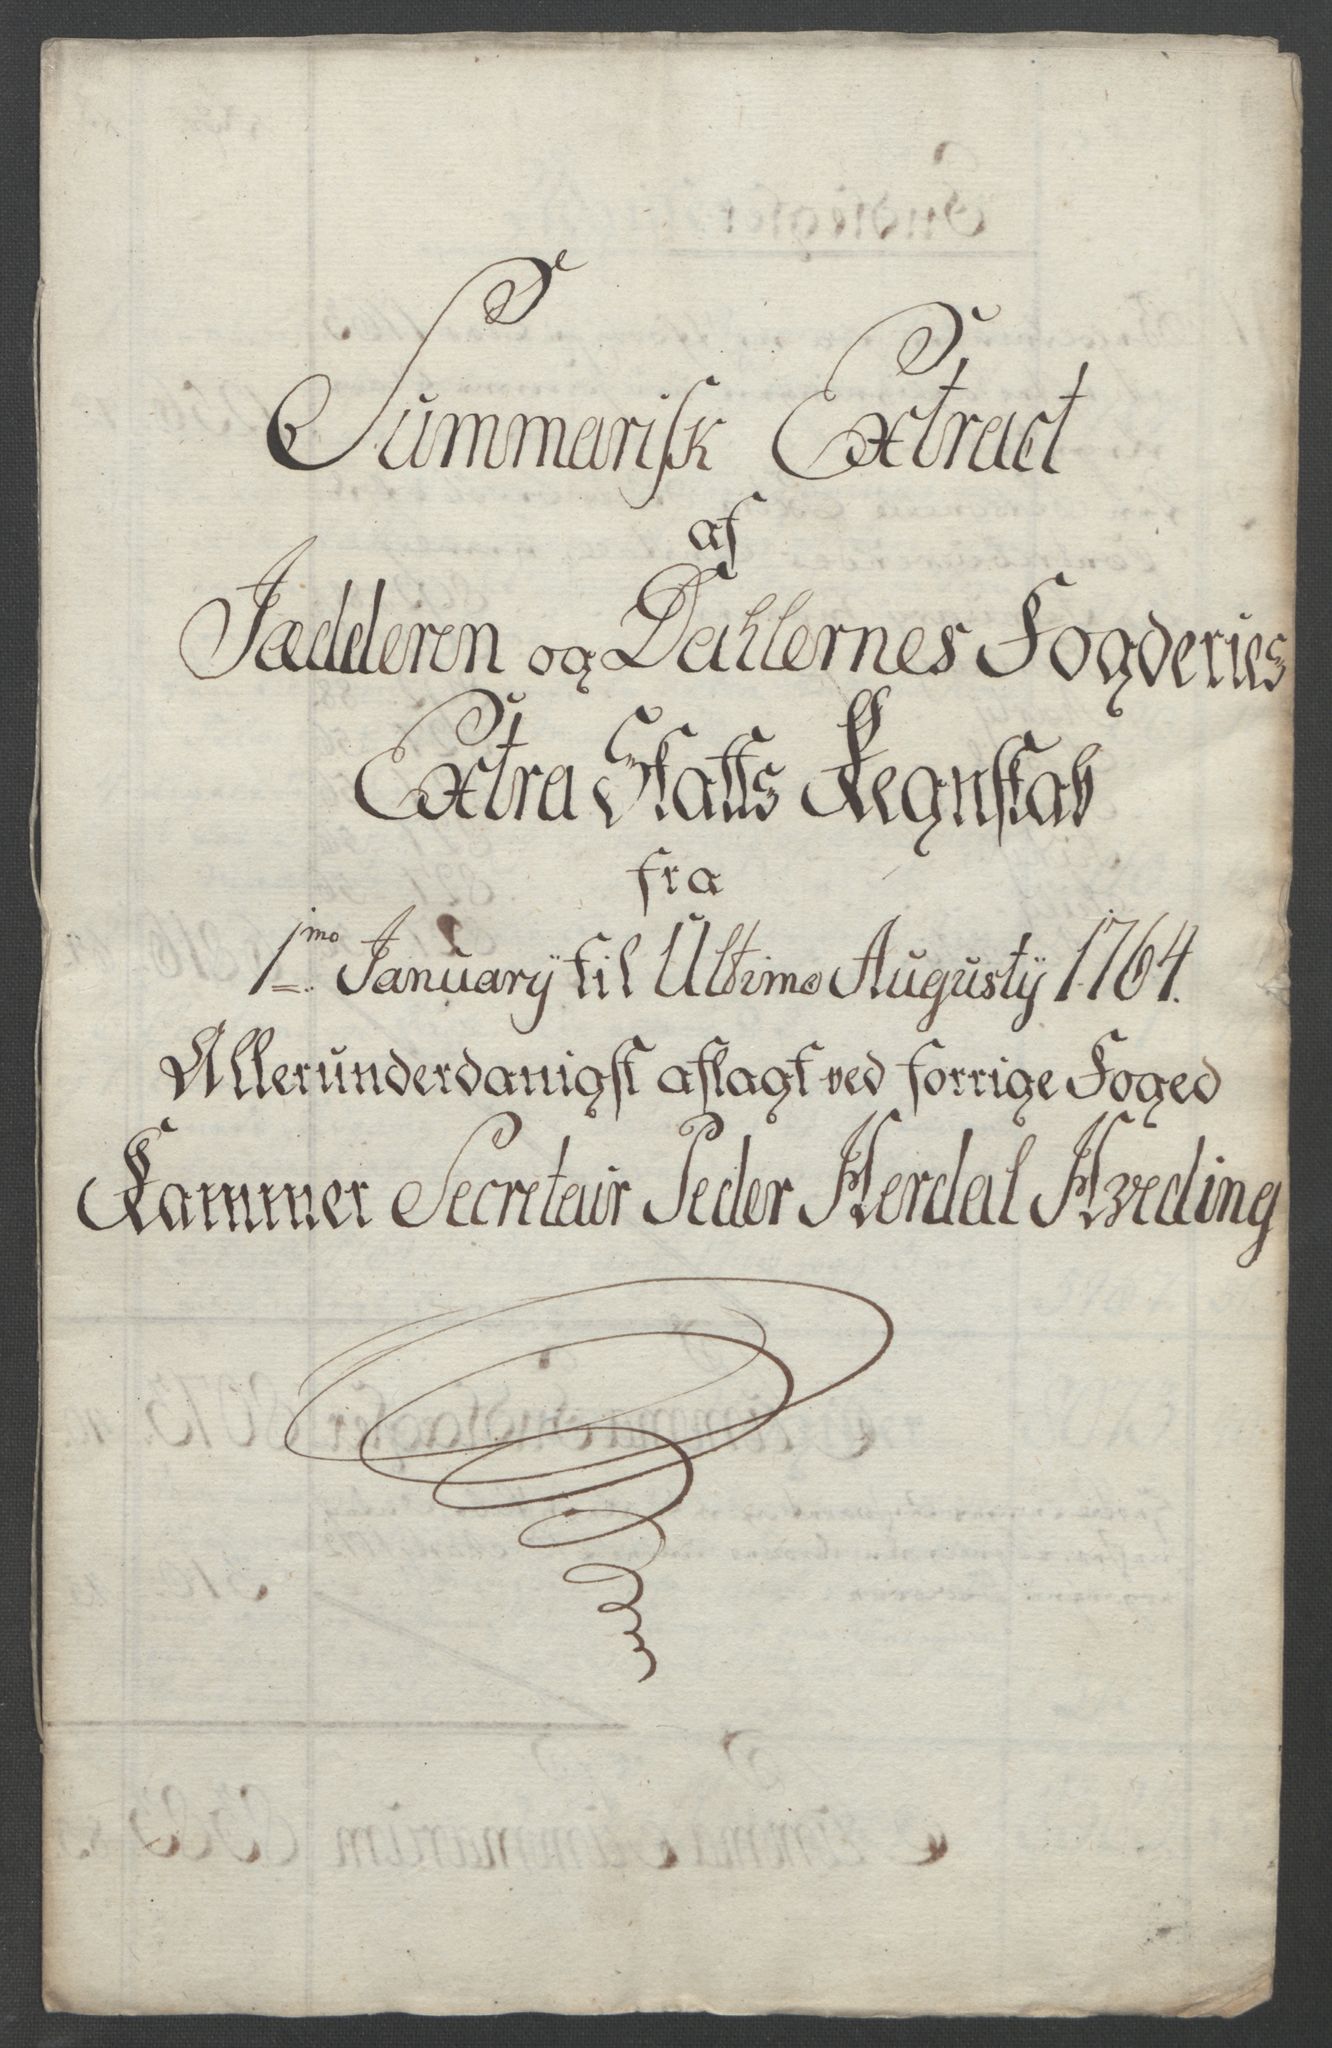 Summarisk Extract
af
Jædderen og Dahlernes Fogderies
Extra Skatts Regnskab
fra
1mo January til Ultimo Augusty 1764.
Allerunderdanigst aflagt ved forrige Foged
Kammer Secretair Peder Herdal Hveding